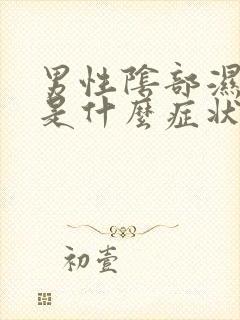 男性陰部濕
是什麼症狀
初壹